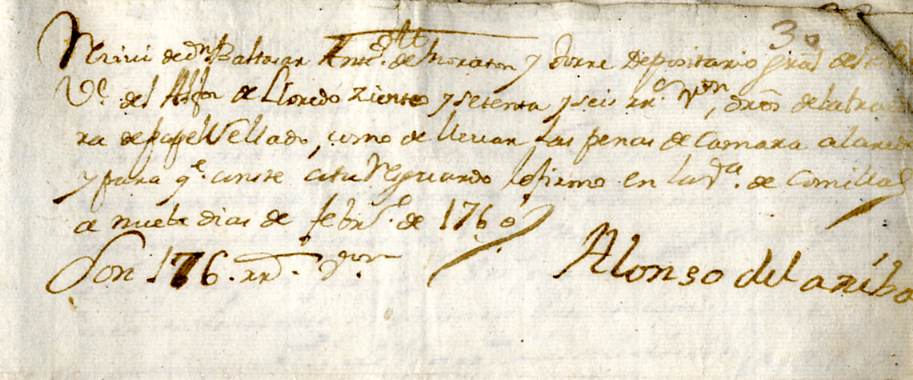 30
Reciví de dn Baltasar Antto. de horaton y Torre Depositario Gral deste
Ve. del Alfoz de Lloredo Ziento y setenta y seis rrs. von, de la
ra de papel Sellado, como de llevar las penas de Camara a
y para qe. conste en su resguardo lo firmo en la Va. de Comillas
a nuebe dias de febro. de 1760
Son 176. rrs. von
Alonso del